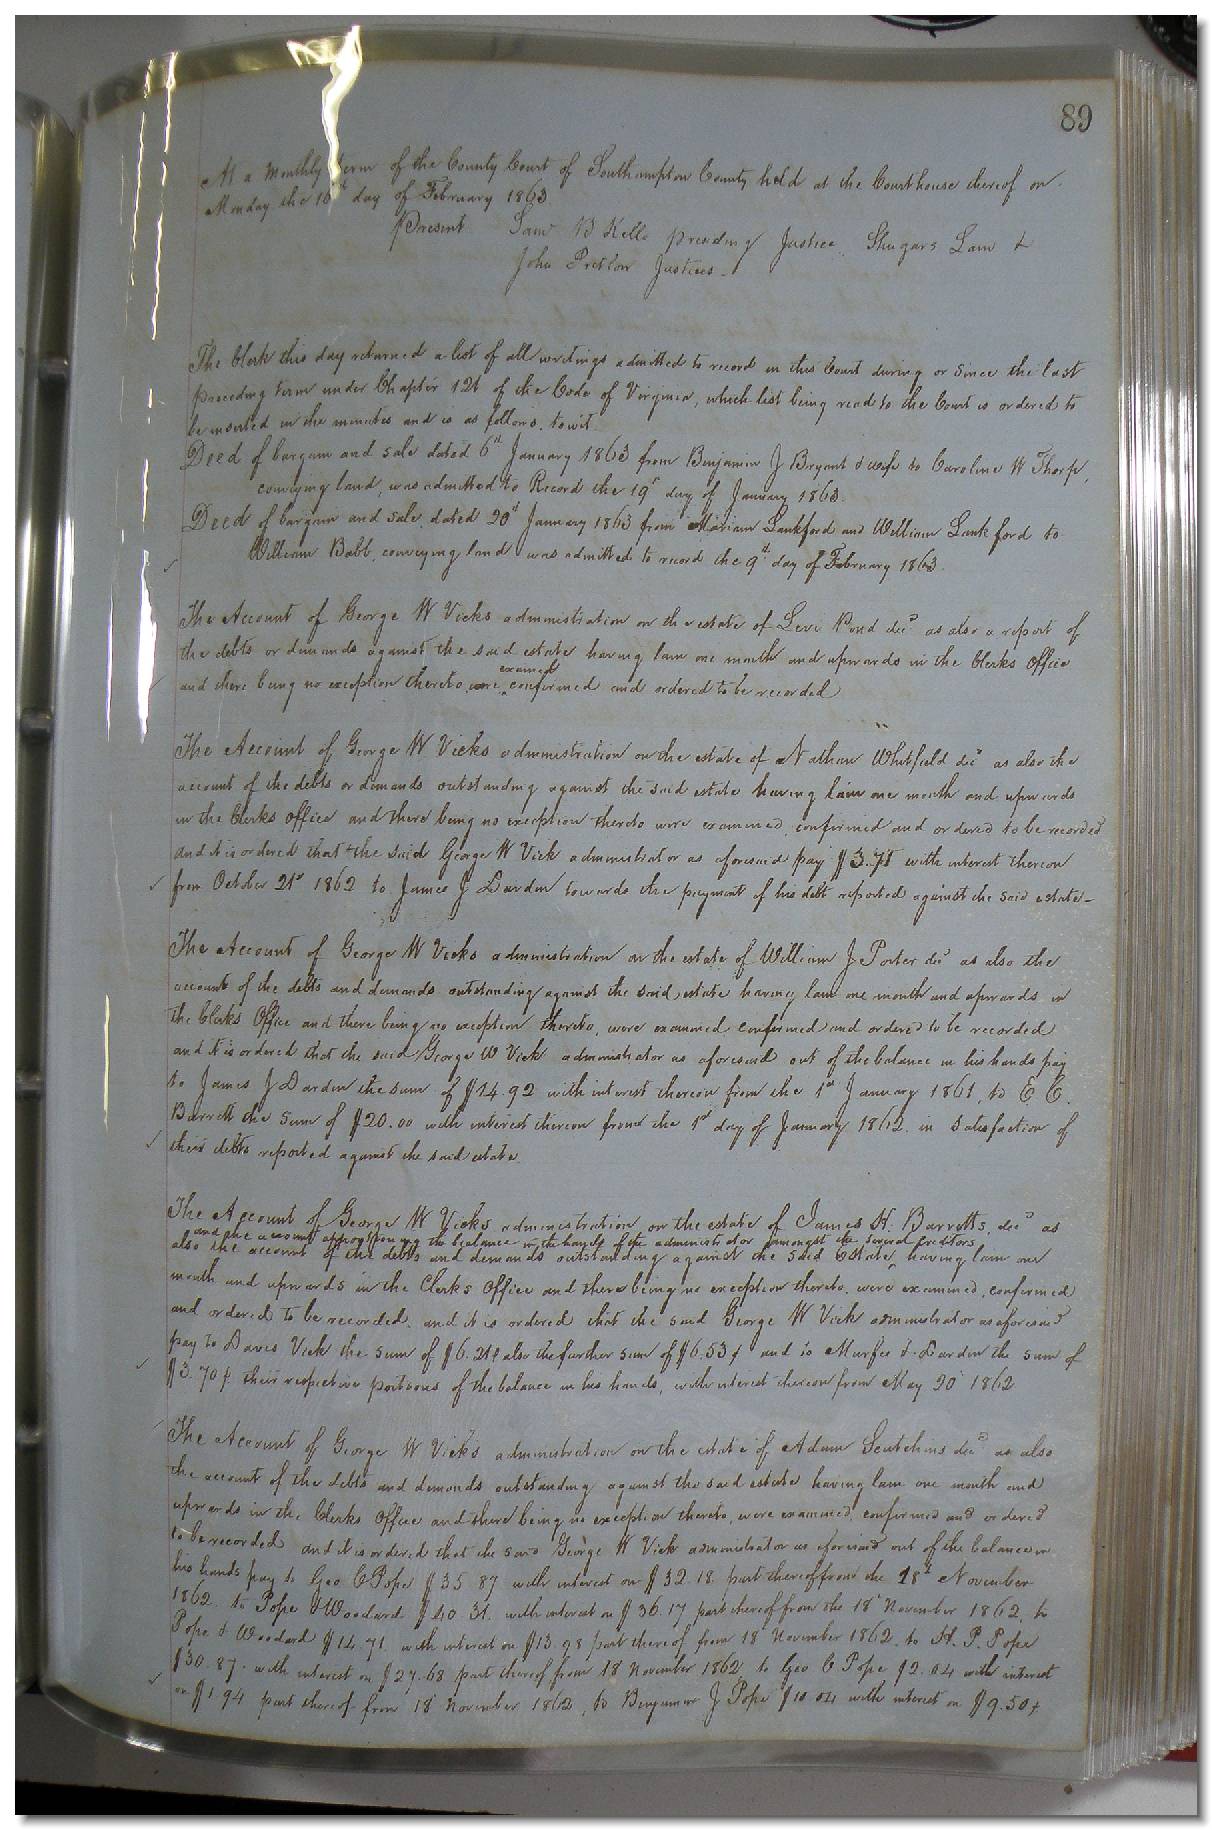 89
At a Monthly term of the County Court of Southampton County held at the Courthouse thereof on
Monday the 16th day of February 1863
Present Sam B Kello presiding Justice Shugars Lain &
John Pretlow Justices.
The Clerk this day returned a list of all writings admitted to record in this Court during or since the last
preceding term under Chapter 121 of the Code of Virginia, which list being read to the Court is ordered to
be inserted in the minutes and is as follows, towit
Deed of bargain and sale dated 6th January 1863 from Benjamin J Bryant & wife to Caroline W Thorp,
conveying land, was admitted to Record the 19th day of January 1863.
Deed of bargain and sale, dated 20th January 1863 from Mariam Lankford and William Lankford to
William Babb, conveying land was admitted to record the 9th day of February 1863.
The Account of George W Vicks administration on the estate of Levi Pond decd as also a report of
the debts or demands against the said estate having lain one month and upwards in the Clerks Office
examined
and there being no exception thereto, were confirmed and ordered to be recorded
The Account of George W Vicks administration on the estate of Nathan Whitfield decd as also the
account of the debts or demands outstanding against the said estate having lain one month and upwards
in the Clerks Office and there being no exception thereto were examined, confirmed and ordered to be recorded
and it is ordered that the said George W Vick administrator as aforesaid pay $3.71 with interest thereon
from October 21st 1862 to James J Darden towards the payment of his debt reported against the said estate-
The Account of George W Vicks administration on the estate of William J Porter decd as also the
account of the debts and demands outstanding against the said estate having lain one month and upwards in
the Clerks Office and there being no exception thereto, were examined confirmed and ordered to be recorded
and it is ordered that the said George W Vick administrator as aforesaid out of the balance in his hands pay
to James J Darden the sum of $14.92 with interest thereon from the 1st January 1861, to E C.
Barrett the sum of $20.00 with interest thereon from the 1st day of January 1862. in satisfaction of
their debts reported against the said estate
The Account of George W Vicks administration on the estate of James H. Barretts, decd as
and the account apportioning the balance in the hands of the administrator amongst the several creditors
also the account of the debts and demands outstanding against the said Estate, having lain one
month and upwards in the Clerks Office and there being no exception thereto, were examined, confirmed
and ordered to be recorded, and it is ordered that the said George W Vick administrator as aforesaid
pay to Davis Vick the sum of $6.21¢ also the further sum of $6.53¢ and to Murfee & Darden the sum of
$3.70¢ their respective portions of the balance in his hands, with interest thereon from May 20 1862
The Account of George W Vick's administration on the estate of Adam Scutchins decd as also
the account of the debts and demands outstanding against the said estate having lain one month and
upwards in the Clerks Office and there being no exception thereto, were examined, confirmed and ordered
to be recorded and it is ordered that the said George W Vick administrator as aforesaid out of the balance in
his hands pay to Geo C Pope $35.87 with interest on $32.18 part thereof from the 18th November
1862. to Pope & Woodard $40.31. with interest on $36.17 part thereof from the 18 November 1862, to
Pope & Woodard $14.71. with interest on $13.98 part thereof from 18 November 1862. to H. P. Pope
$30.87. with interest on $27.68 part thereof from 18 November 1862 to Geo C Pope $2.04 with interest
on $1.94 part thereof from 18 November 1862, to Benjamin J Pope $10.04 with interest on $9.50¢